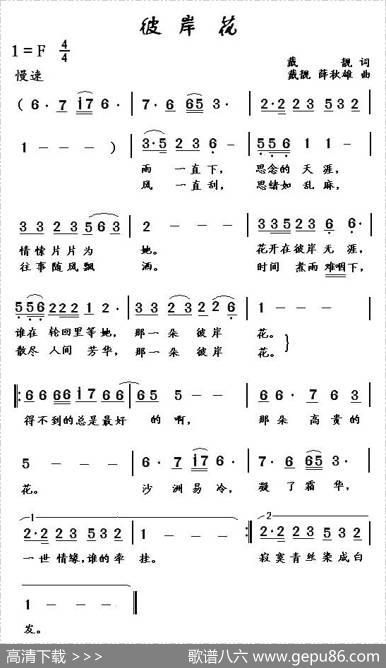 彼岸花
1=F 4/4
慢速
戴靓 词
戴靓 薛秋雄 曲
( 6· 7 i76· | 7· 6 653· | 2·2 23 532 |
1 - - - ) | 3·5 23 6 - | 556 1 - - |
雨 一直下, 思念的 天 涯,
风 一直刮, 思绪如 乱 麻,
33 23 5 63 | 2 - - - | 3352 36 5 - |
情愫片片为 她。 花开在彼岸 无 涯,
往事随风飘 洒。 时间 煮雨难咽下,
556 222 1 2· | 33 23 2 26 | 1 - - - |
谁在 轮回里等她, 那一朵 彼岸 花。
散尽 人间 芳华, 那一朵 彼岸 花。
得不到的总是最好 的 啊, 那朵 高贵的
5 - - - | 6· 7 i76· | 7· 6 653· |
花。 沙洲易冷, 凝了霜华,
1 2
2·2 23 532 | 1 - - - :| 2·2 23 532 |
一世 情缘,谁的牵 挂。 寂寞 青丝 染成白
1 - - - ||
发。
高清下载 >>> 歌谱八六 www.gepu86.com